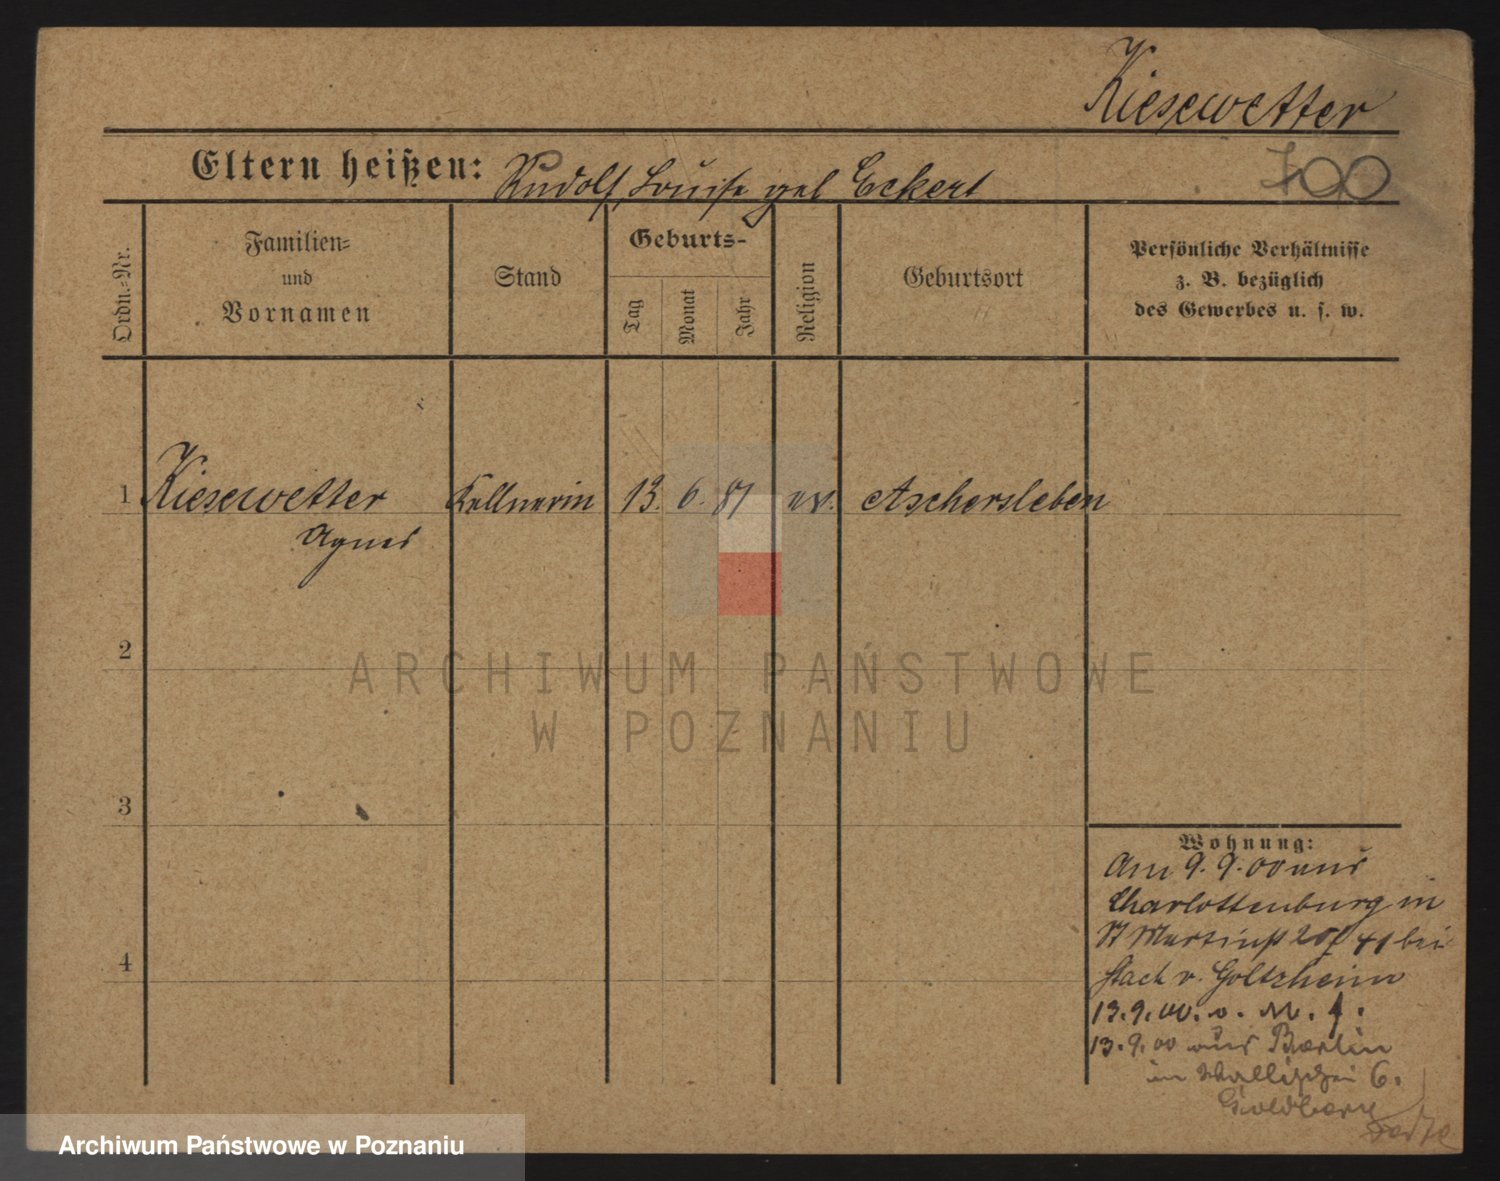 Kiesewetter
Eltern heißen: Rudolf, Louise geb Eckert
700
Ordn.-Nr.
Familien-
und
Vornamen
Stand
Geburts-
Tag
Monat
Jahr
Religion
Geburtsort
Persönliche Verhältnisse
z. B. bezüglich
des Gewerbes u. s. w.
1 Kiesewetter Kellnerin 13. 6. 81 ev. Aschersleben
Agnes
2
ARCHIWUM PAŃSTWOWE
W POZNANIU
3
Wohnung:
Am 9. 9. 00 aus
Charlottenburg in
St Martinst bei
4
v. Goltzheim
13. 9. 00. v. M. f.
13. 9. 00 aus Berlin
in Wallischei 6.
Goldberg
Archiwum Państwowe w Poznaniu